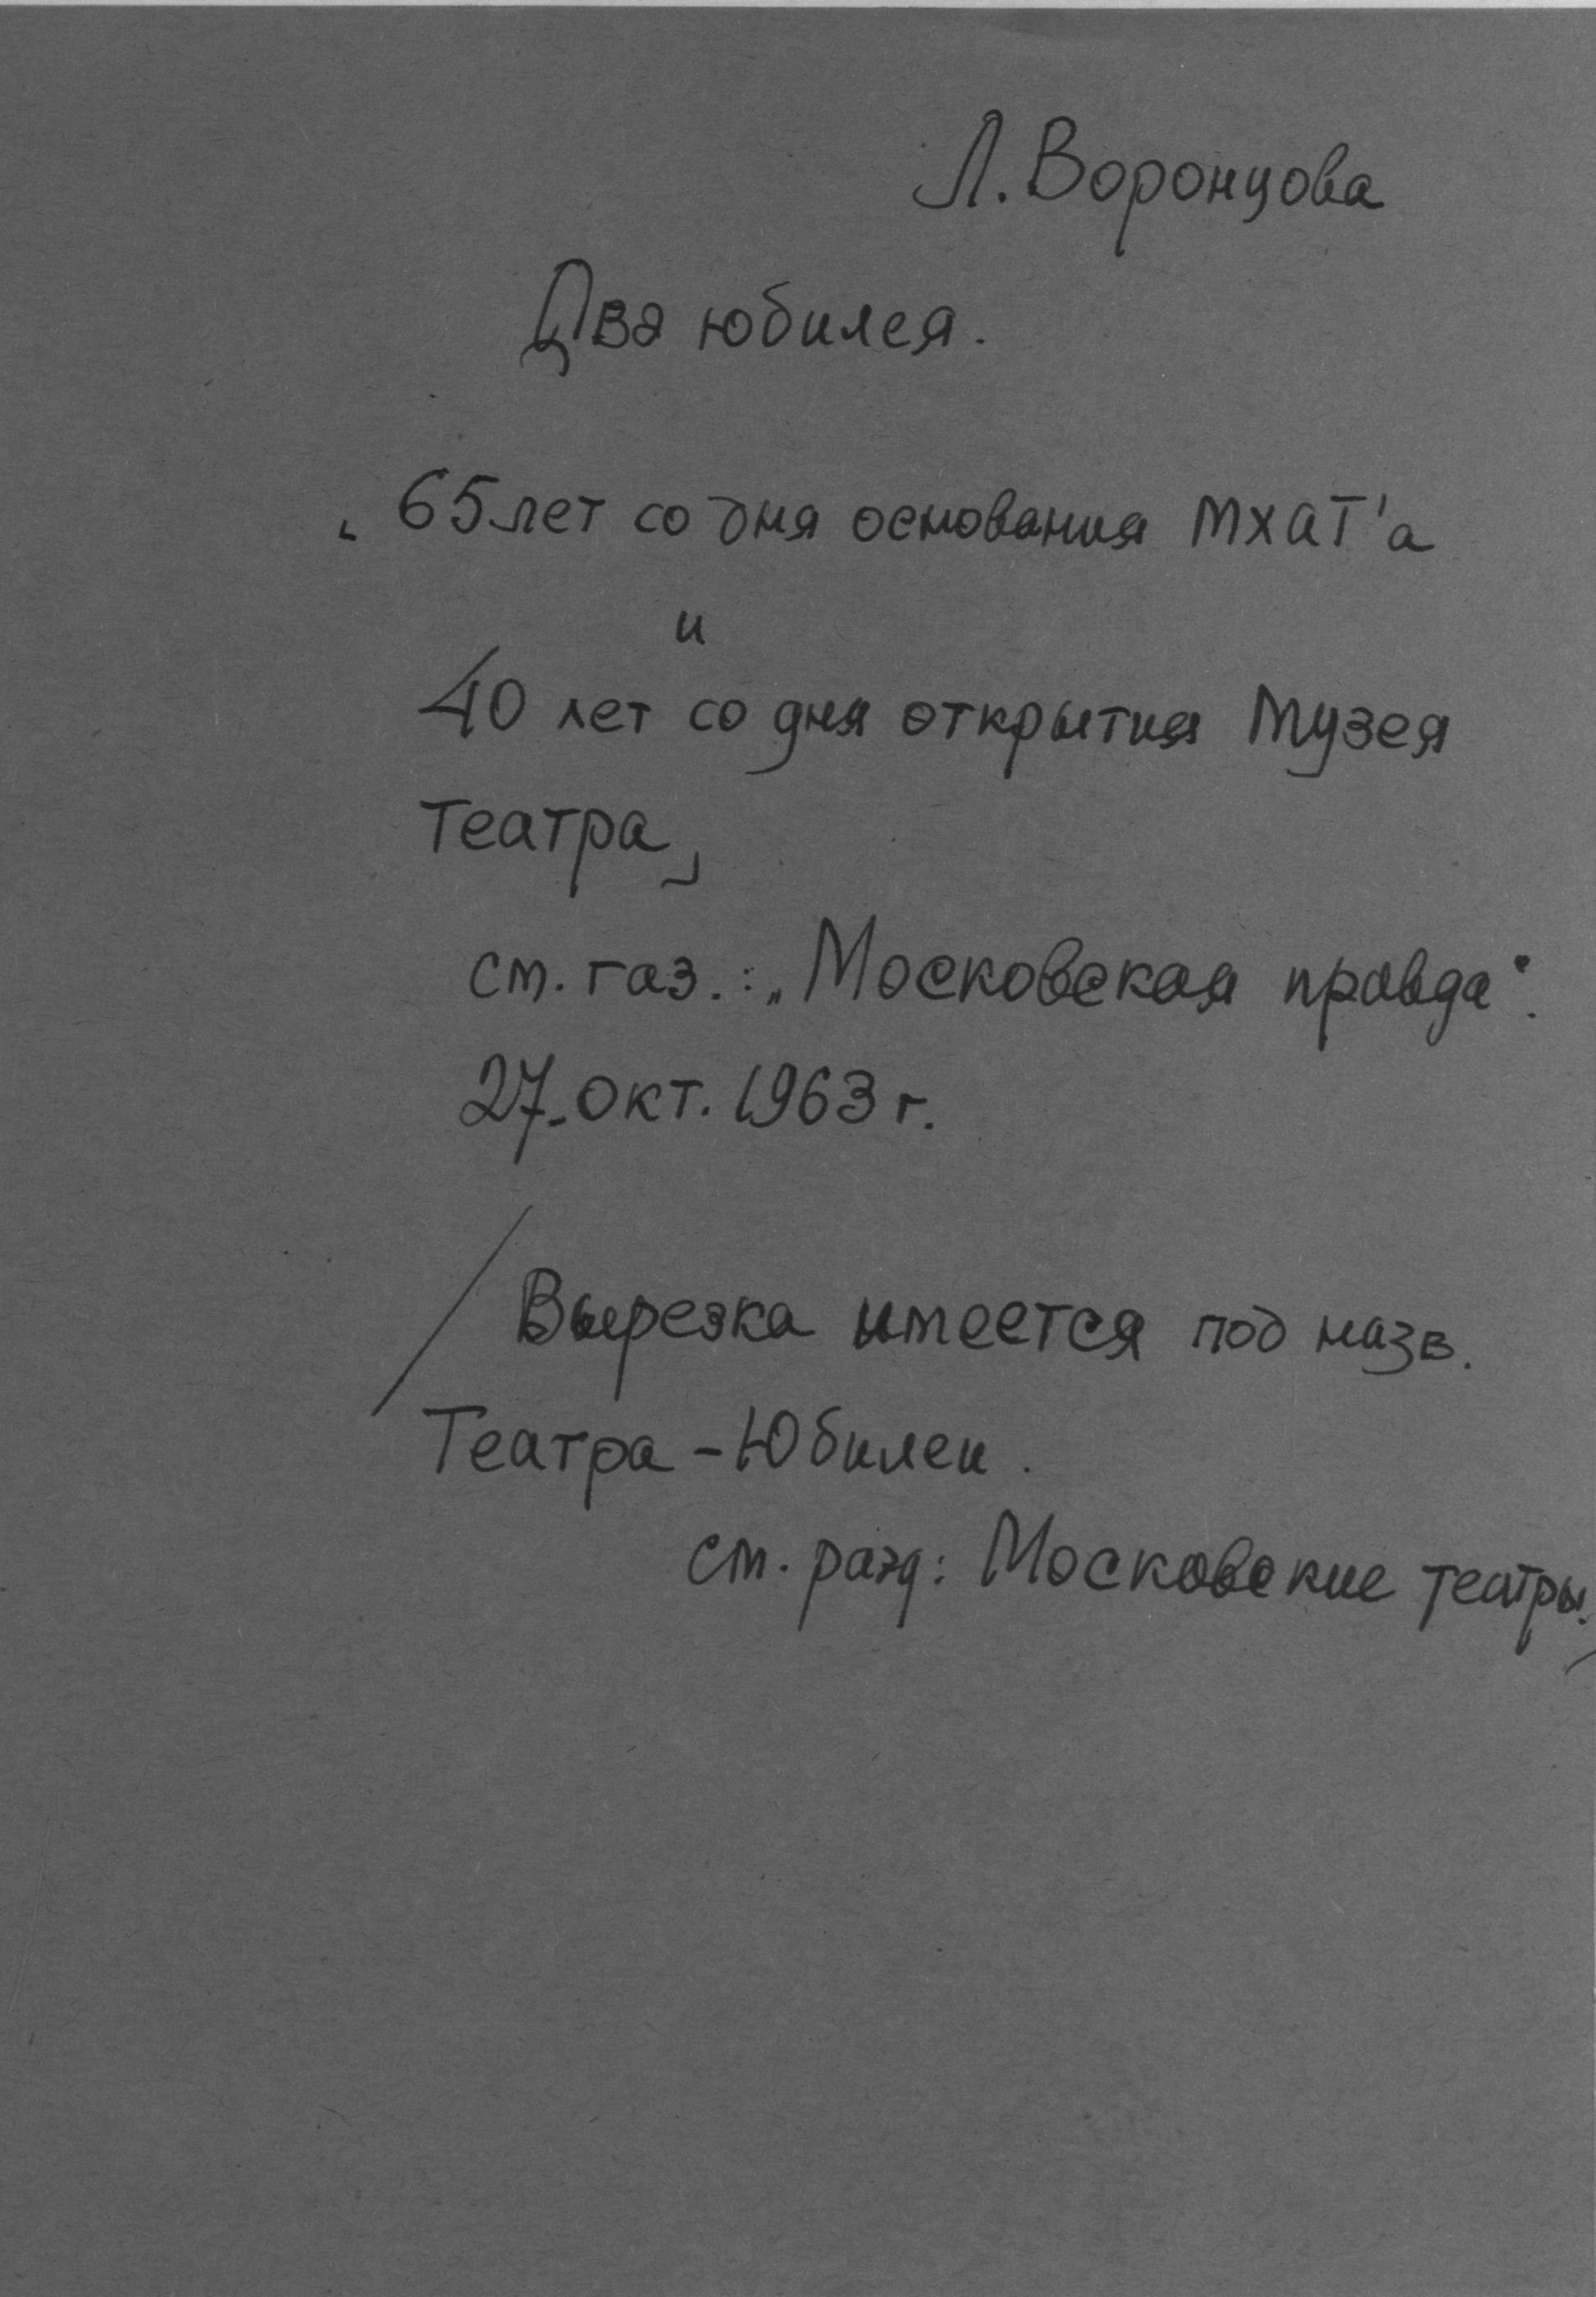 Л. Воронцова
Два юбилея.
65 лет со дня основания МХАТ'а
и
40 лет со дня открытия Музея
Театра
см. газ.: „Московская правда".
27. окт. 1963 г.
/Вырезка имеется под назв.
Театра - Юбилеи.
см. разд: Московские театры./